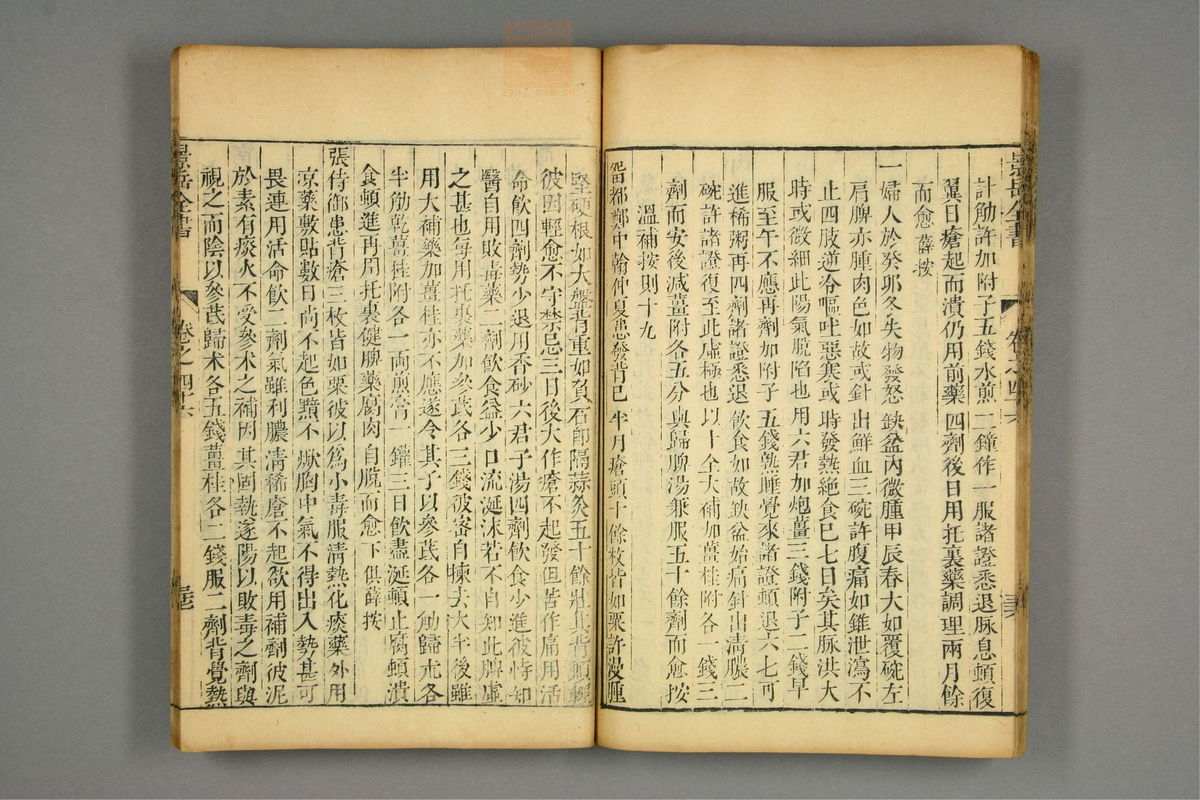 景岳全書
卷之四十六
計觔許加附子五錢水煎二鐘作一服諸證悉退脉息頓復
翼日瘡起而潰仍用前藥四劑後日用托裏藥調理兩月餘
而愈 薛按
一婦人於癸卯冬失物發怒缺盆內微腫甲辰春大如覆碗左
肩脾亦腫肉色如故或針出鮮血三碗許腹痛如錐泄瀉不
止四肢逆冷嘔吐惡寒或時發熱絶食已七日矣其脉洪大
時或微細此陽氣脫陷也用六君加炮薑三錢附子二錢早
服至午不應再劑加附子五錢熟睡覺來諸證頓退六七可
進稀粥再四劑諸證悉退飲食如故缺盆始痛針出清膿二
碗許諸證復至此虛極也以十全大補加薑桂附各一錢三
劑而安後減薑附各五分與歸脾湯兼服五十餘劑而愈 按
溫補按則十九
留都鄭中翰仲夏患發背已半月瘡頭十餘枚皆如粟許漫腫
堅硬根如大盤背重如負石卽隔蒜灸五十餘壯其背頓輕
彼因輕愈不守禁忌三日後大作瘡不起發但苦作痛用活
命飲四劑勢少退用香砂六君子湯四劑飲食少進彼恃知
醫自用敗毒藥二劑飲食益少口流涎沫若不自知此脾虛
之甚也每用托裏藥加參芪各三錢彼密自揀去大半後雖
用大補藥加薑桂亦不應遂令其子以參芪各一觔歸朮各
半觔乾薑桂附各一兩煎膏一罐三日飲盡涎頓止腐頓潰
食頓進再用托裏健脾藥腐肉自脫而愈 下俱薛按
張侍御患背瘡三枚皆如粟彼以爲小毒服清熱化痰藥外用
凉藥敷貼數日尚不起色黯不焮胸中氣不得出入勢甚可
畏連用活命飲二劑氣雖利膿清稀瘡不起欲用補劑彼泥
於素有痰火不受參朮之補因其固執遂陽以敗毒之劑與
視之而陰以參芪歸朮各五錢薑桂各二錢服二劑背覺熱
景岳全書
卷之四十六